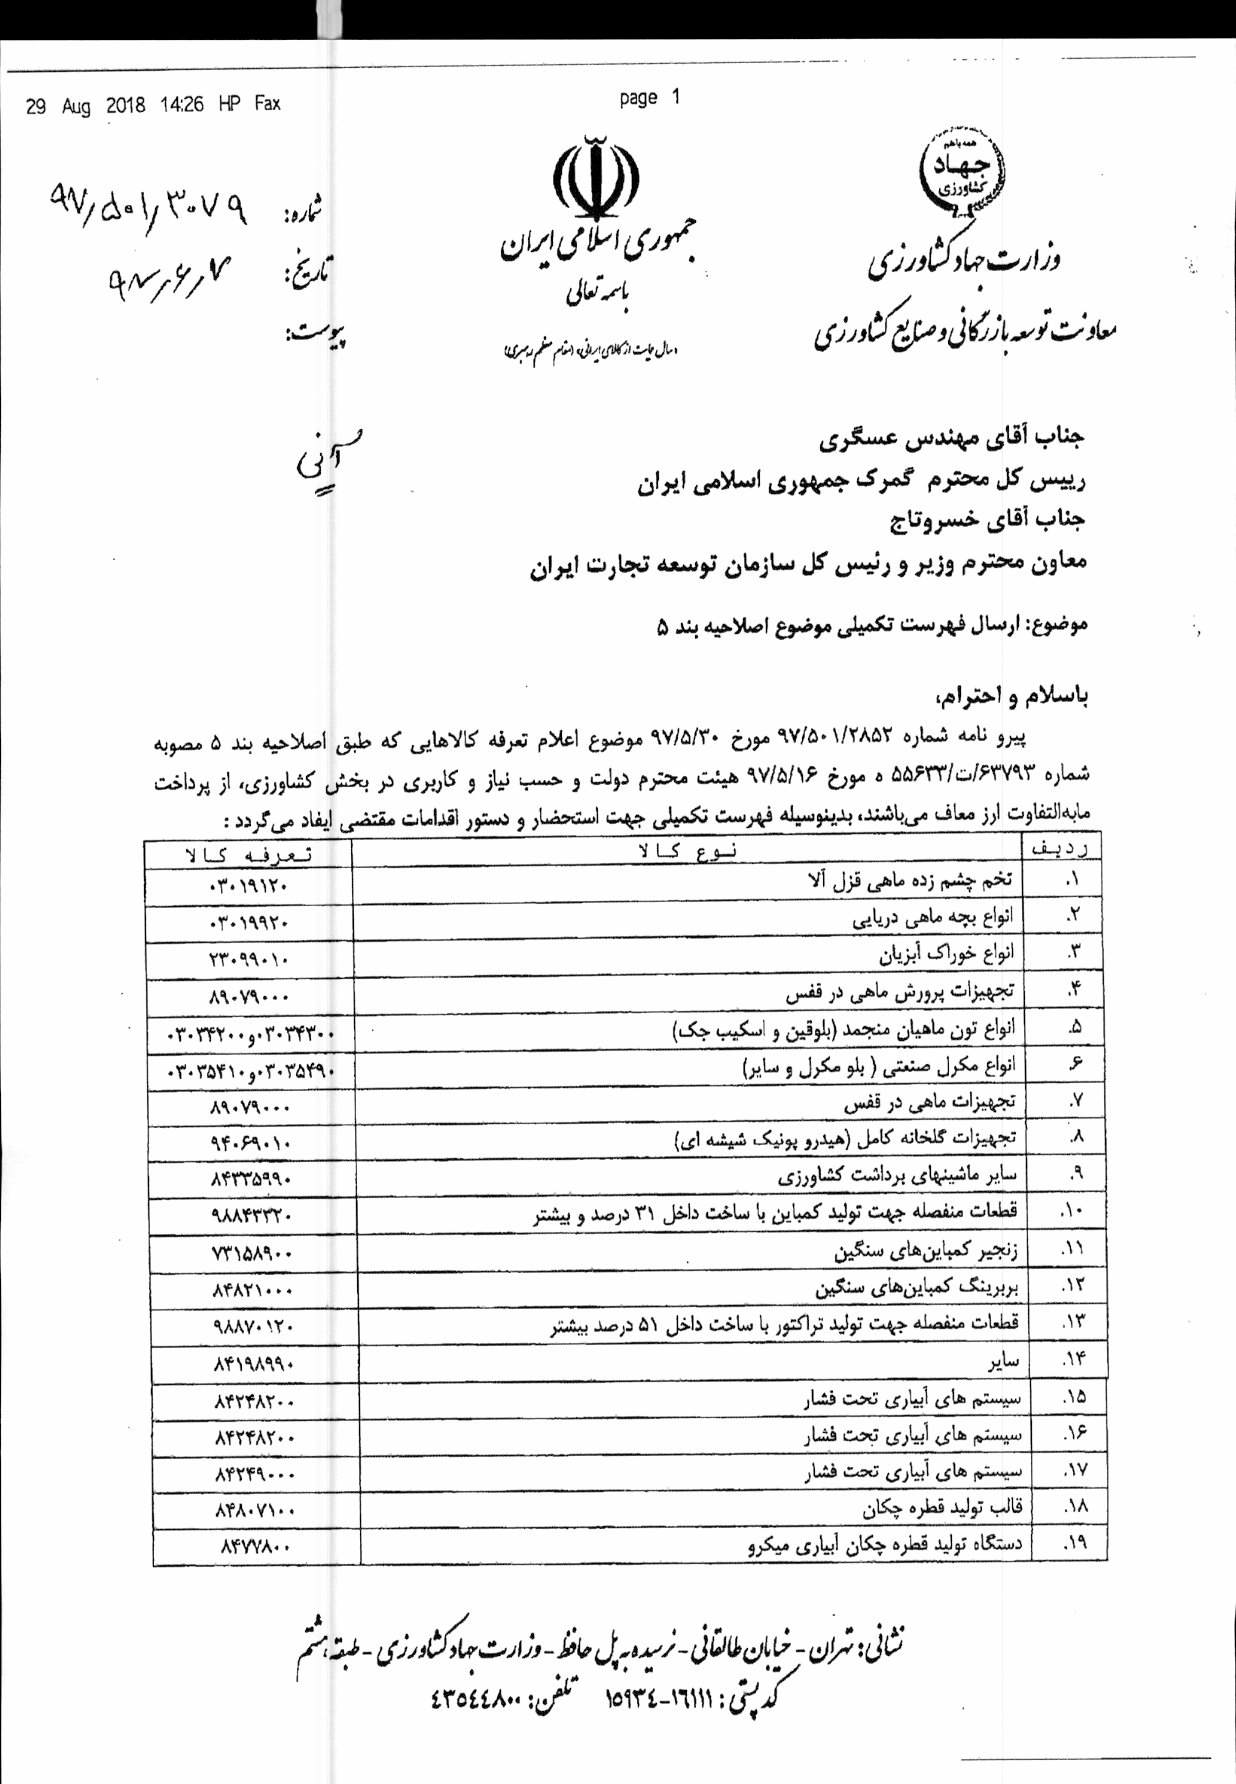 29 Aug 2018 14:26 HP Fax
page 1
همه با هم
جهاد
کشاورزی
وزارت جهاد کشاورزی
معاونت توسعه بازرگانی و صنایع کشاورزی
جمهوری اسلامی ایران
باسمه تعالی
«سال حمایت از کالای ایرانی» (مقام معظم رهبری)
شماره: ۹۷/۵۰۱/۳۰۷۹
تاریخ: ۹۷/۶/۷
پیوست:
آنی
جناب آقای مهندس عسگری
رییس کل محترم گمرک جمهوری اسلامی ایران
جناب آقای خسروتاج
معاون محترم وزیر و رئیس کل سازمان توسعه تجارت ایران
موضوع: ارسال فهرست تکمیلی موضوع اصلاحیه بند ۵
باسلام و احترام،
پیرو نامه شماره ۹۷/۵۰۱/۲۸۵۲ مورخ ۹۷/۵/۳۰ موضوع اعلام تعرفه کالاهایی که طبق اصلاحیه بند ۵ مصوبه
شماره ۶۳۷۹۳/ت/۵۵۶۳۳ ه مورخ ۹۷/۵/۱۶ هیئت محترم دولت و حسب نیاز و کاربری در بخش کشاورزی، از پرداخت
مابه‌التفاوت ارز معاف می‌باشند، بدینوسیله فهرست تکمیلی جهت استحضار و دستور اقدامات مقتضی ایفاد می‌گردد :
ردیف نوع کالا تعرفه کالا
۱. تخم چشم زده ماهی قزل آلا ۰۳۰۱۹۱۲۰
۲. انواع بچه ماهی دریایی ۰۳۰۱۹۹۲۰
۳. انواع خوراک آبزیان ۲۳۰۹۹۰۱۰
۴. تجهیزات پرورش ماهی در قفس ۸۹۰۷۹۰۰۰
۵. انواع تون ماهیان منجمد (بلوقین و اسکیب جک) ۰۳۰۳۴۳۰۰و۰۳۰۳۴۲۰۰
۶. انواع مکرل صنعتی ( بلو مکرل و سایر) ۰۳۰۳۵۴۹۰و۰۳۰۳۵۴۱۰
۷. تجهیزات ماهی در قفس ۸۹۰۷۹۰۰۰
۸. تجهیزات گلخانه کامل (هیدرو پونیک شیشه ای) ۹۴۰۶۹۰۱۰
۹. سایر ماشینهای برداشت کشاورزی ۸۴۳۳۵۹۹۰
۱۰. قطعات منفصله جهت تولید کمباین با ساخت داخل ۳۱ درصد و بیشتر ۹۸۸۴۳۳۲۰
۱۱. زنجیر کمباین‌های سنگین ۷۳۱۵۸۹۰۰
۱۲. بربرینگ کمباین‌های سنگین ۸۴۸۲۱۰۰۰
۱۳. قطعات منفصله جهت تولید تراکتور با ساخت داخل ۵۱ درصد بیشتر ۹۸۸۷۰۱۲۰
۱۴. سایر ۸۴۱۹۸۹۹۰
۱۵. سیستم های آبیاری تحت فشار ۸۴۲۴۸۲۰۰
۱۶. سیستم های آبیاری تحت فشار ۸۴۲۴۸۲۰۰
۱۷. سیستم های آبیاری تحت فشار ۸۴۲۴۹۰۰۰
۱۸. قالب تولید قطره چکان ۸۴۸۰۷۱۰۰
۱۹. دستگاه تولید قطره چکان آبیاری میکرو ۸۴۷۷۸۰۰
نشانی: تهران - خیابان طالقانی - نرسیده به پل حافظ - وزارت جهاد کشاورزی - طبقه هشتم
کد پستی: ۱۶۱۱۱-۱۵۹۳۴ تلفن: ۴۳۵۴۴۸۰۰